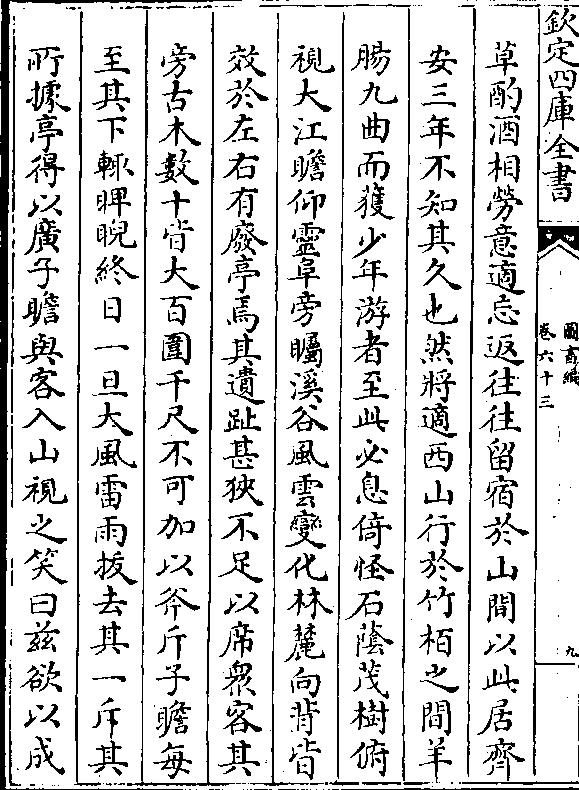 欽定四庫全書
圖書編
卷六十三
九
草酌酒相勞意適忘返往往留宿於山間以此居齊
安三年不知其久也然將適西山行於竹栢之間羊
腸九曲而獲少年游者至此必息倚怪石蔭茂樹俯
視大江瞻仰靈阜旁矚溪谷風雲變化林麓向背皆
效於左右有廢亭焉其遺趾甚狹不足以席衆客其
旁古木數十皆大百圍千尺不可加以斧斤子瞻每
至其下輒睥睨終日一旦大風雷雨拔去其一斥其
所據亭得以廣子瞻與客入山視之笑曰兹欲以成